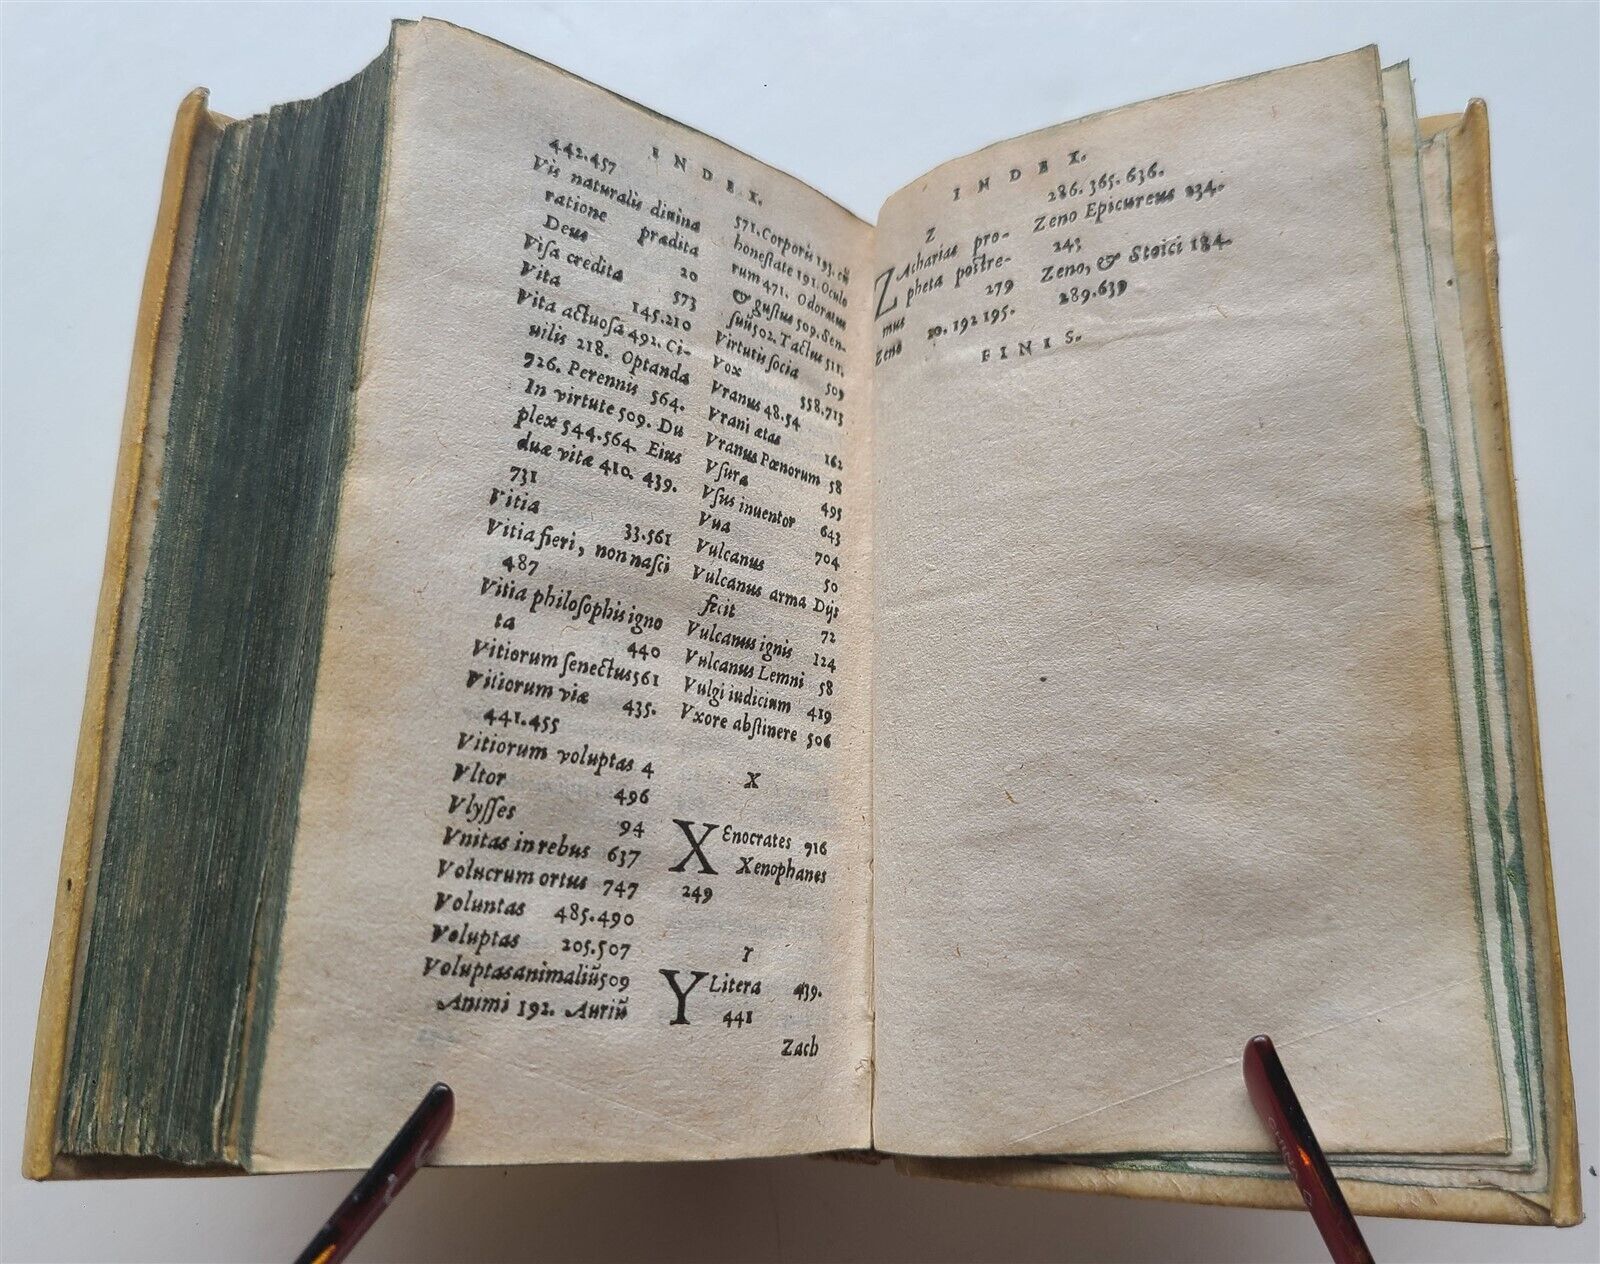 INDEX.
442.457
Vis naturalis diuina
ratione prædita
Deus 20
Visa credita 573
Vita 145.210
Vita actuosa 492. Ci-
uilis 218. Optanda
726. Perennis 564.
In virtute 509. Du
plex 544.564. Eius
duæ vitæ 410. 439.
731
Vitia 33.561
Vitia fieri, non nasci
487
Vitia philosophis igno
ta 440
Vitiorum senectus 561
Vitiorum viæ 435.
441.455
Vitiorum voluptas 4
Vltor 496
Vlysses 94
Vnitas in rebus 637
Volucrum ortus 747
Voluntas 485.490
Voluptas 205.507
Voluptas animaliũ 509
Animi 192. Auriũ
571. Corporis 193. cũ
honestate 191. Oculo
rum 471. Odoratus
& gustus 509. Sen-
suũ 502. Tactus 511.
Virtutis socia 509
Vox 558.713
Vranus 48.54
Vrani ætas 162
Vranus Pœnorum 58
Vsura 495
Vsus inuentor 643
Vua 704
Vulcanus 50
Vulcanus arma Dijs
fecit 72
Vulcanus ignis 124
Vulcanus Lemni 58
Vulgi iudicium 419
Vxore abstinere 506
X
XEnocrates 916
Xenophanes
249
Y
Y Litera 439.
441
Zach
INDEX.
Z
ZAcharias pro-
pheta postre-
mus 279
Zeno 20. 192 195.
286. 365. 636.
Zeno Epicureus 234.
243
Zeno, & Stoici 184.
289.639
FINIS.